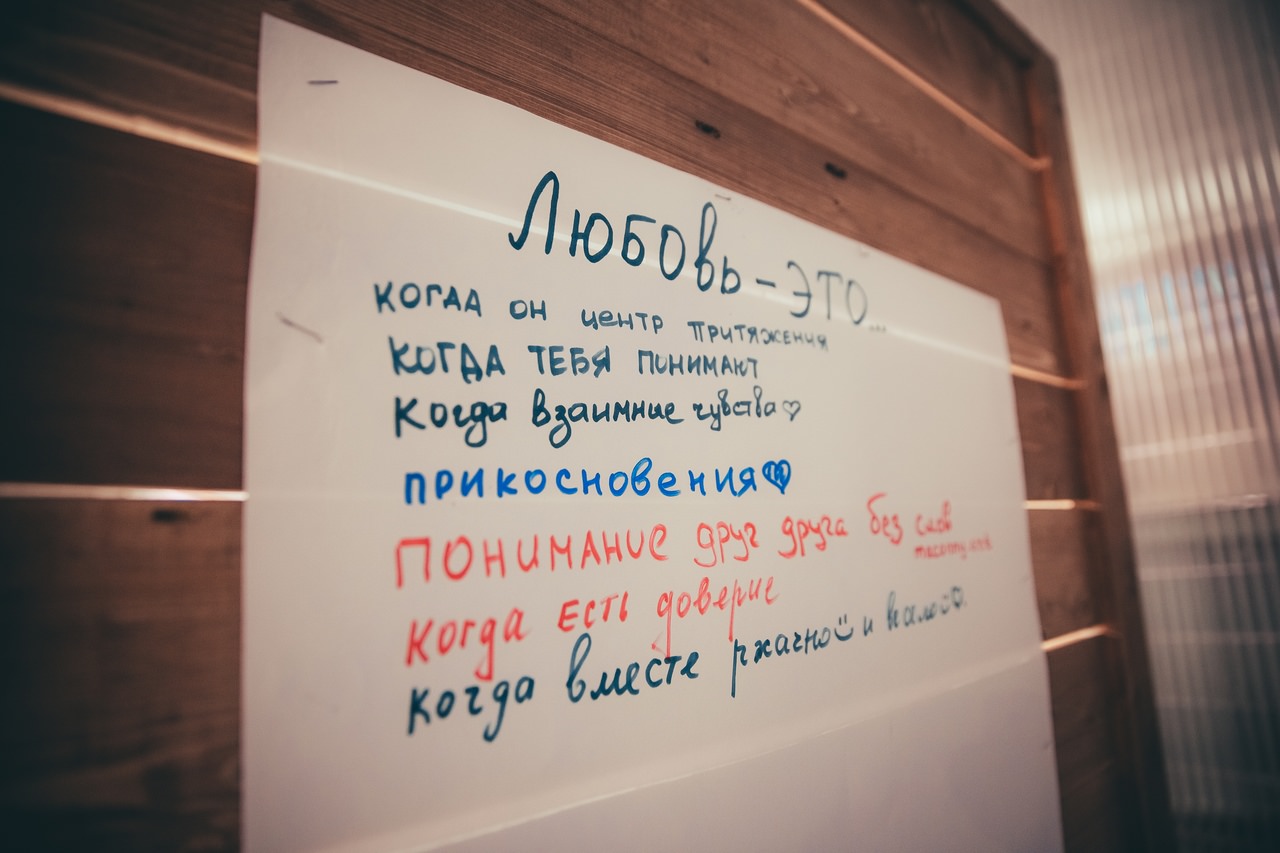 Любовь - ЭТО...
когда он центр притяжения
когда тебя понимают
Когда взаимные чувства♡
прикосновения
Понимание друг друга без слов
когда есть доверие
когда вместе ржачно и весело